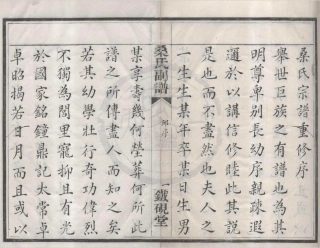 桑氏宗譜重修序
舉世巨族之有譜也為其
明尊卑別長幼序親疎遐
邇於以講信修睦此其說
是也而不盡然也夫人之
一生生某年卒某日生男
桑氏副譜
序
鐵硯堂
某享壽幾何塋葬何所此
譜之所傳盡人而知之矣
若其幼學壯行奇功偉烈
不獨為閭里寵抑且有光
於國家銘鐘鼎記太常卓
卓昭揭若日月而且或以